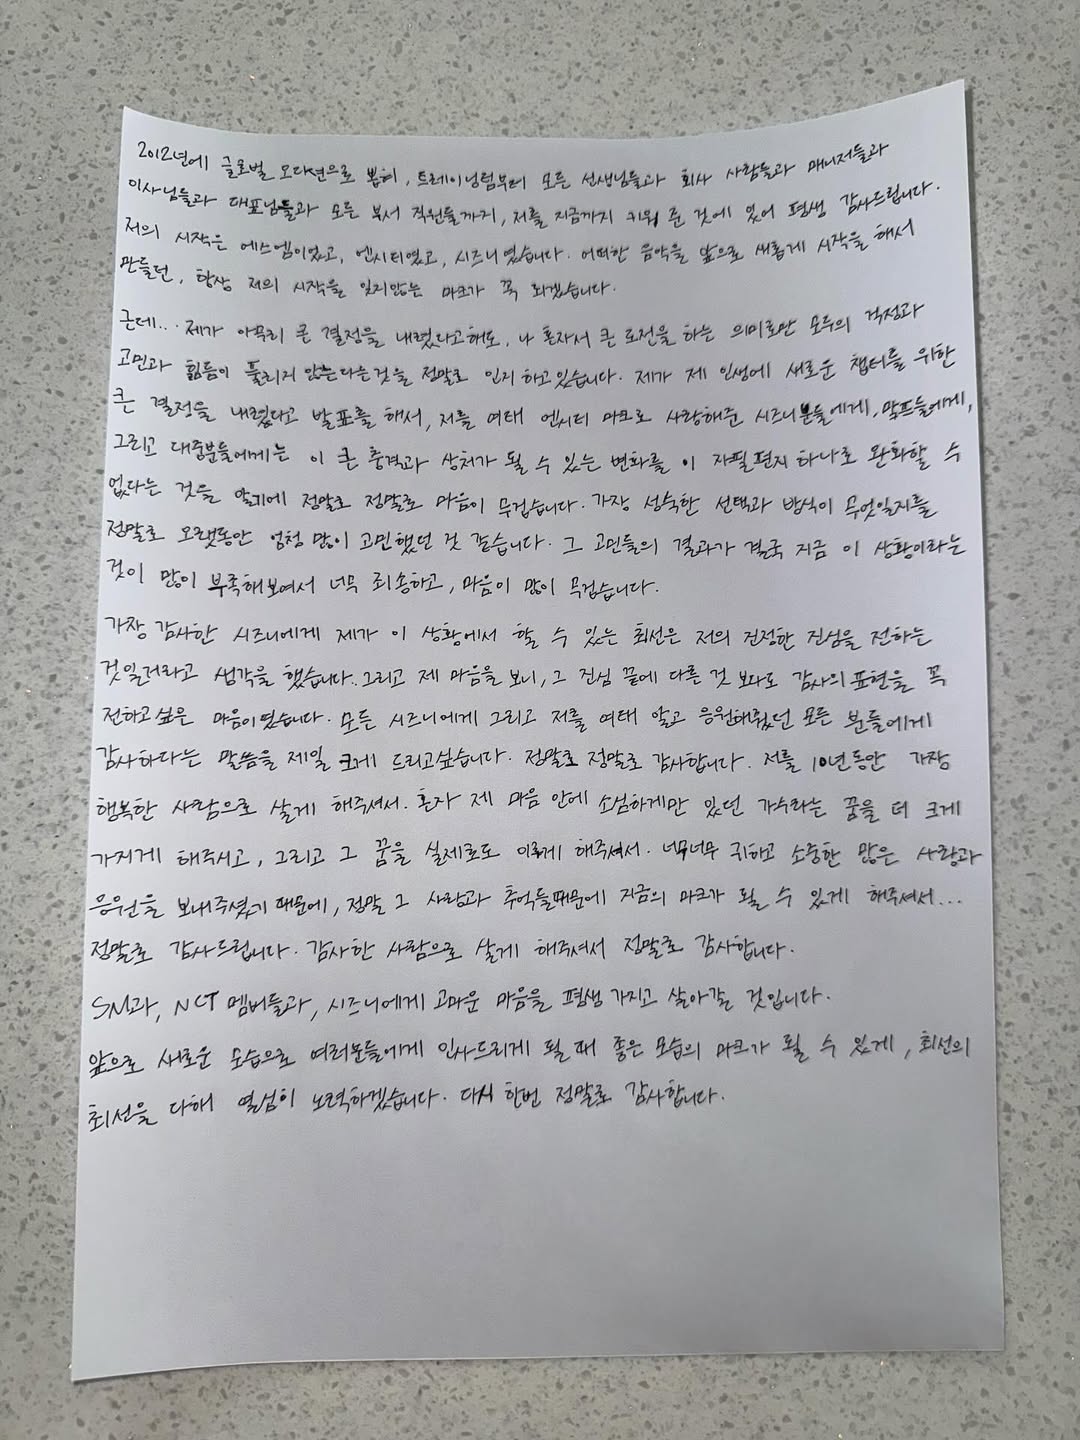 2012년에 글로벌 오디션으로 뽑혀, 트레이닝팀부터 모든 선생님들과 회사 사람들과 매니저들과
이사님들과 대표님들과 모든 부서 직원들까지, 저를 지금까지 키워 준 것에 있어 평생 감사드립니다.
저의 시작은 에스엠이었고, 엔시티였고, 시즈니였습니다. 어떠한 음악을 앞으로 새롭게 시작을 해서
만들던, 항상 저의 시작을 잊지않는 마크가 꼭 되겠습니다.
근데... 제가 아무리 큰 결정을 내렸다고해도, 나 혼자서 큰 도전을 하는 의미로만 모두의 걱정과
고민과 힘듦이 풀리지 않는다는것을 정말로 인지 하고있습니다. 제가 제 인생에 새로운 챕터를 위한
큰 결정을 내렸다고 발표를 해서, 저를 여태 엔시티 마크로 사랑해준 시즈니분들에게, 맠프들에게,
그리고 대중분들에게는 이 큰 충격과 상처가 될 수 있는 변화를 이 자필편지 하나로 완화할 수
없다는 것을 알기에 정말로 정말로 마음이 무겁습니다. 가장 성숙한 선택과 방식이 무엇일지를
정말로 오랫동안 엄청 많이 고민했던 것 같습니다. 그 고민들의 결과가 결국 지금 이 상황이라는
것이 많이 부족해보여서 너무 죄송하고, 마음이 많이 무겁습니다.
가장 감사한 시즈니에게 제가 이 상황에서 할 수 있는 최선은 저의 진정한 진심을 전하는
것일거라고 생각을 했습니다. 그리고 제 마음을 보니, 그 진심 끝에 다른 것 보다도 감사의 표현을 꼭
전하고싶은 마음이였습니다. 모든 시즈니에게 그리고 저를 여태 알고 응원해줬던 모든 분들에게
감사하다는 말씀을 제일 크게 드리고싶습니다. 정말로 정말로 감사합니다. 저를 10년동안 가장
행복한 사람으로 살게 해주셔서. 혼자 제 마음 안에 소심하게만 있던 가수라는 꿈을 더 크게
가지게 해주시고, 그리고 그 꿈을 실제로도 이루게 해주셔서. 너무너무 귀하고 소중한 많은 사랑과
응원을 보내주셨기 때문에, 정말 그 사랑과 추억들때문에 지금의 마크가 될 수 있게 해주셔서...
정말로 감사드립니다. 감사한 사람으로 살게 해주셔서 정말로 감사합니다.
SM과, NCT 멤버들과, 시즈니에게 고마운 마음을 평생 가지고 살아갈 것입니다.
앞으로 새로운 모습으로 여러분들에게 인사드리게 될때 좋은 모습의 마크가 될 수 있게, 최선의
최선을 다해 열심히 노력하겠습니다. 다시 한번 정말로 감사합니다.